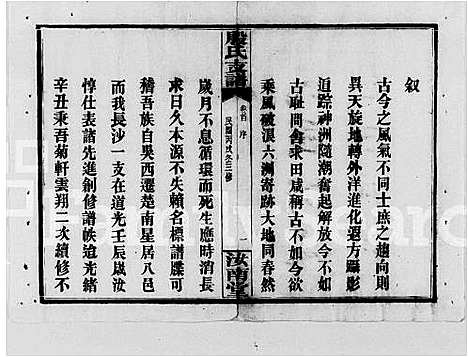 叙
古今之風氣不同士庶之趨向則
異天旋地轉外洋進化遐方躡影
追踪神洲隨潮奮起解放今不如
古耻問舍求田咸稱古不如今欲
乘風破浪六洲寄跡大地同春然
殷氏支譜
卷首 序 一
民國丙戌冬三修
汝南堂
歲月不息循環而死生應時消長
求曰久本源不失賴名標譜牒可
稽吾族自吳西遷楚南星居八邑
而我長沙一支在道光壬辰歲汝
惇仕表諸先進創修譜帙迨光緒
辛丑秉吾菊軒雲翔二次續修不